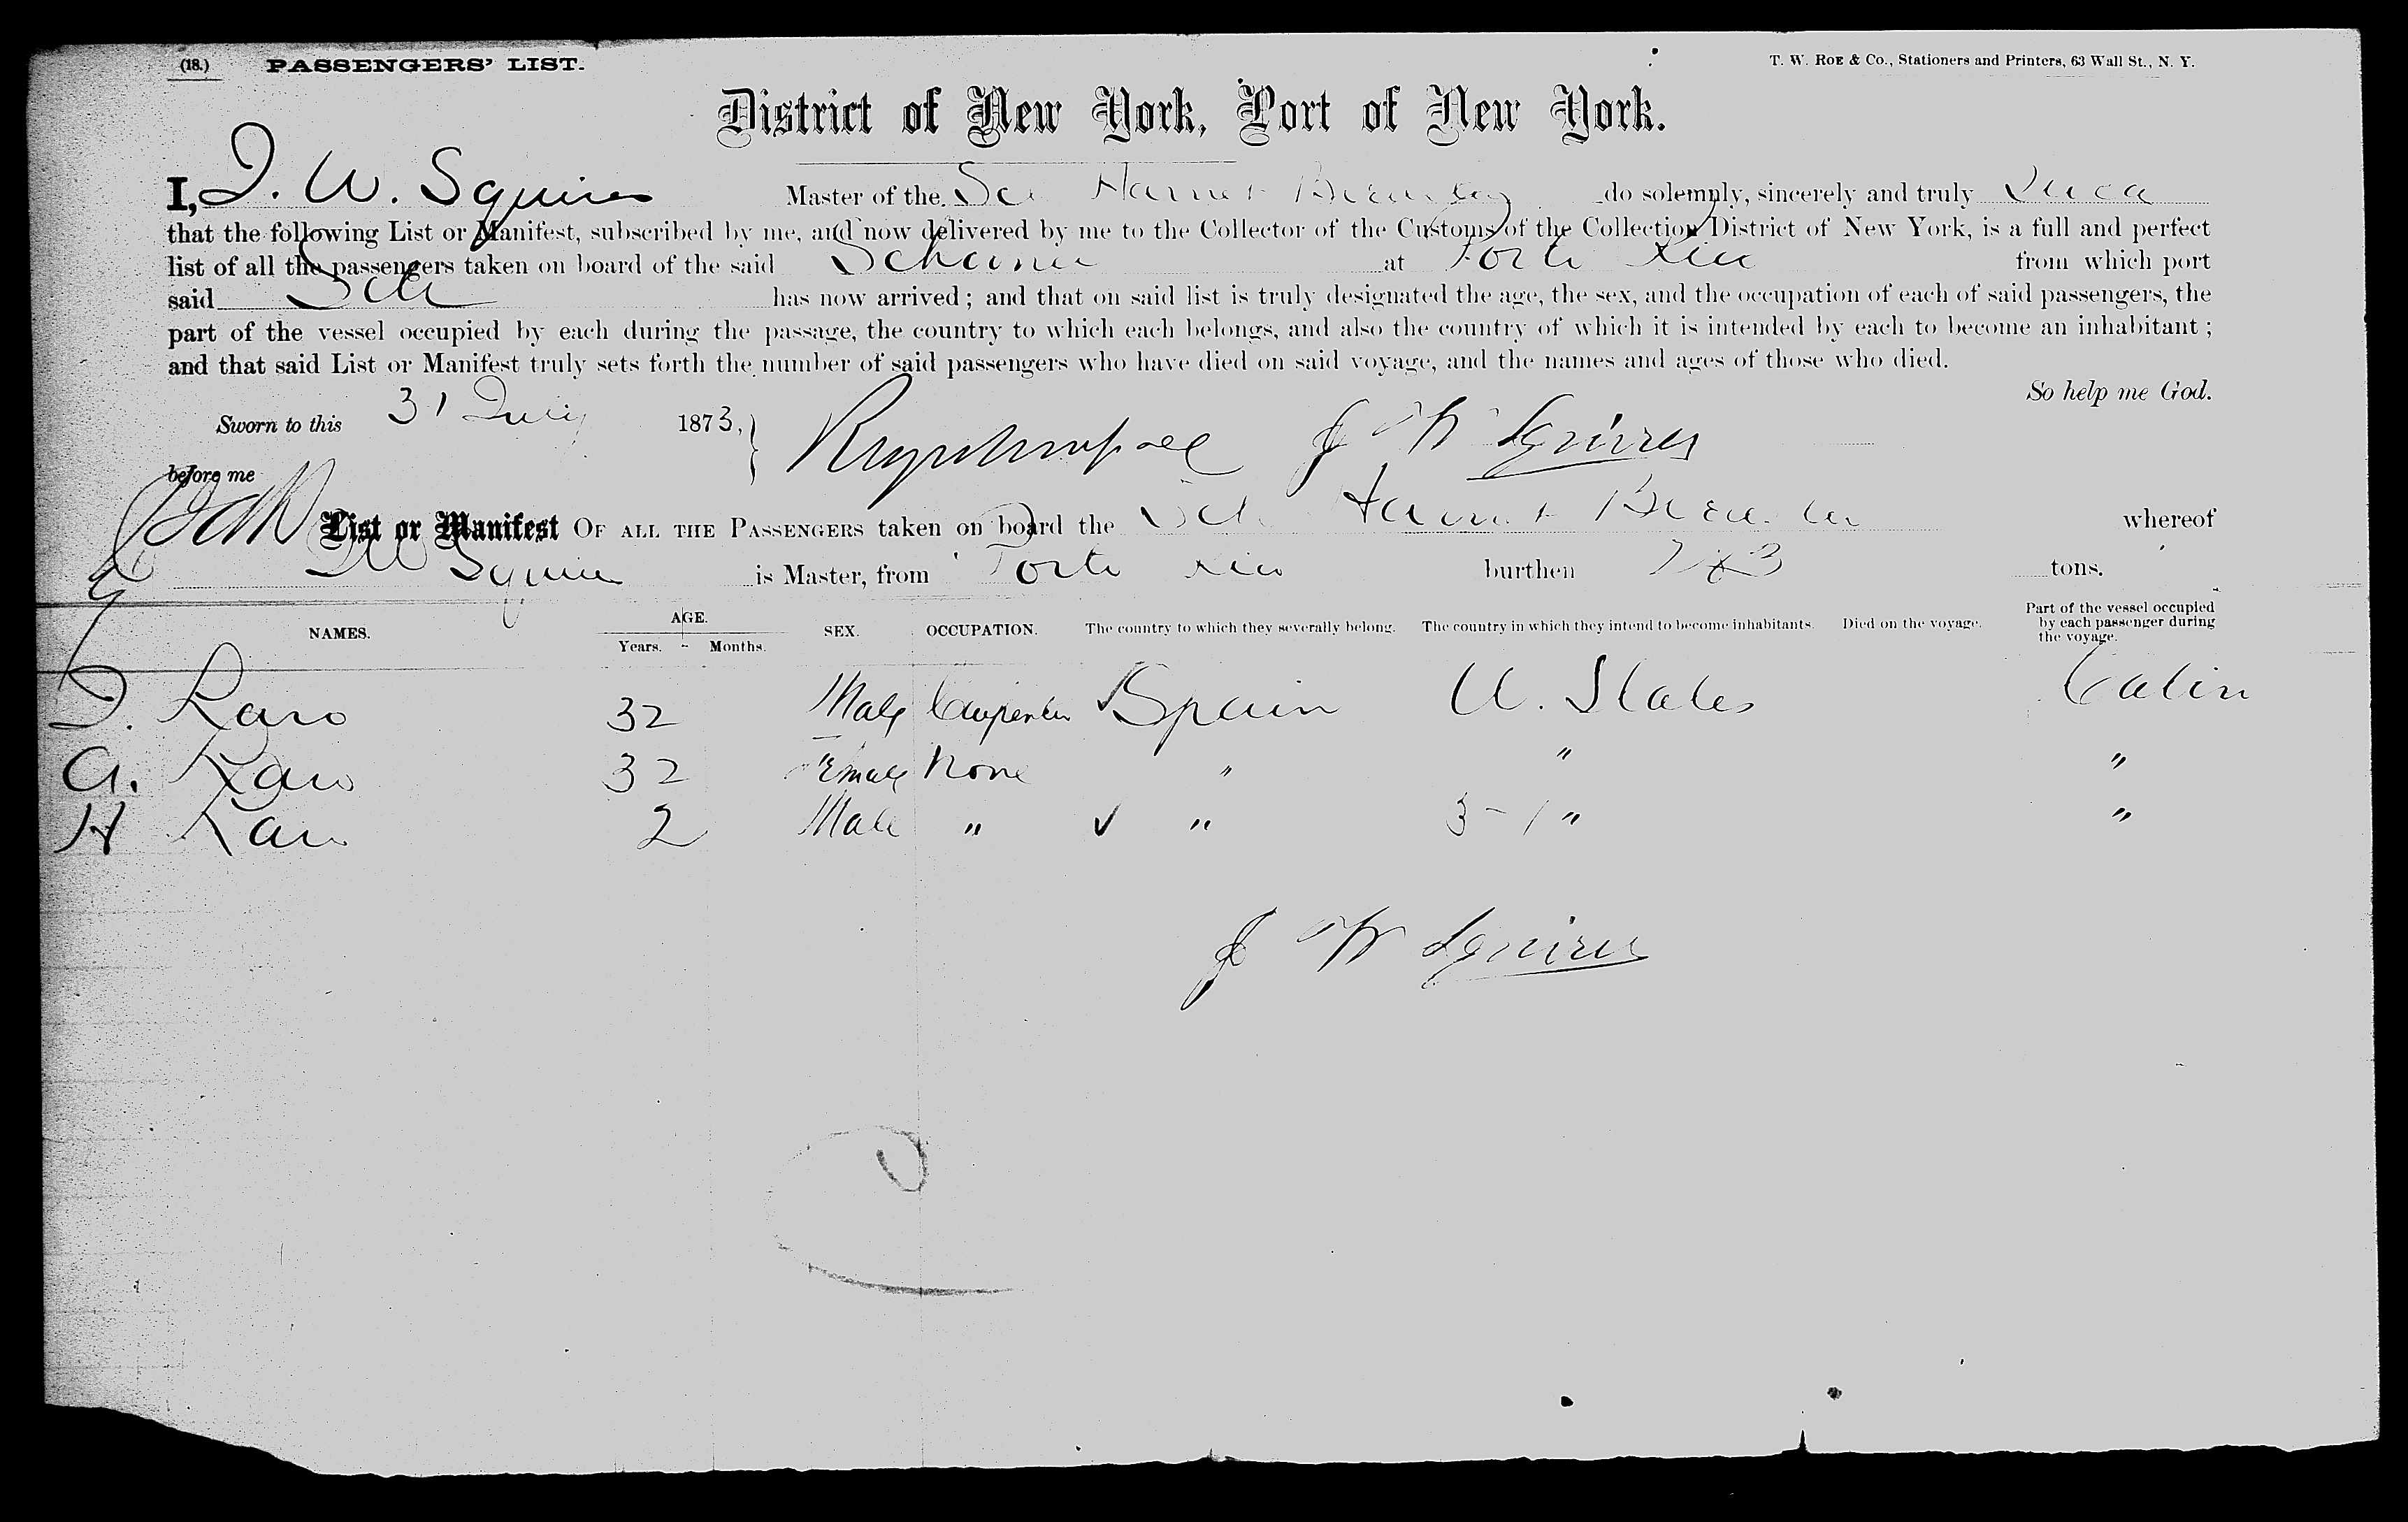 (18.) PASSENGERS' LIST. T. W. ROE & Co., Stationers and Printers, 63 Wall St., N. Y.
District of New York, Port of New York.
I, J. W. Squires Master of the Sch Harriet do solemnly, sincerely and truly Swear
that the following List or Manifest, subscribed by me, and now delivered by me to the Collector of the Customs of the Collection District of New York, is a full and perfect
list of all the passengers taken on board of the said Schooner at Porto Rico from which port
said Sch has now arrived; and that on said list is truly designated the age, the sex, and the occupation of each of said passengers, the
part of the vessel occupied by each during the passage, the country to which each belongs, and also the country of which it is intended by each to become an inhabitant;
and that said List or Manifest truly sets forth the number of said passengers who have died on said voyage, and the names and ages of those who died.
So help me God.
Sworn to this 31 July 1873, J W Squires
before me
List or Manifest OF ALL THE PASSENGERS taken on board the Sch Harriet whereof
J W Squires is Master, from Porto Rico burthen tons.
NAMES. AGE. Years. Months. SEX. OCCUPATION. The country to which they severally belong. The country in which they intend to become inhabitants. Died on the voyage. Part of the vessel occupied by each passenger during the voyage.
J. 32 Male Carpenter Spain U. States Cabin
A. 32 Female None " " "
H 2 Male " " 3-1 " "
J W Squires